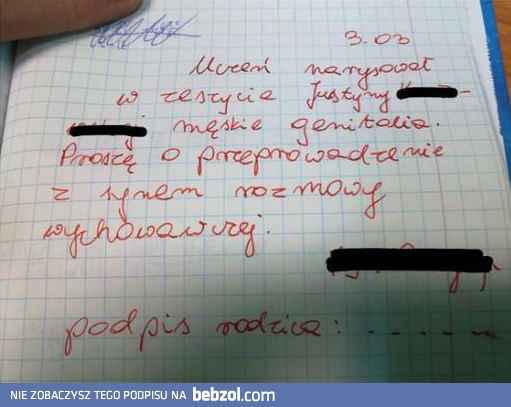 3.03
Uczeń narysował
w zeszycie Justyny
męskie genitalia.
Proszę o przeprowadzenie
z synem rozmowy
wychowawczej.
podpis rodzica: - - - - -
NIE ZOBACZYSZ TEGO PODPISU NA bebzol.com